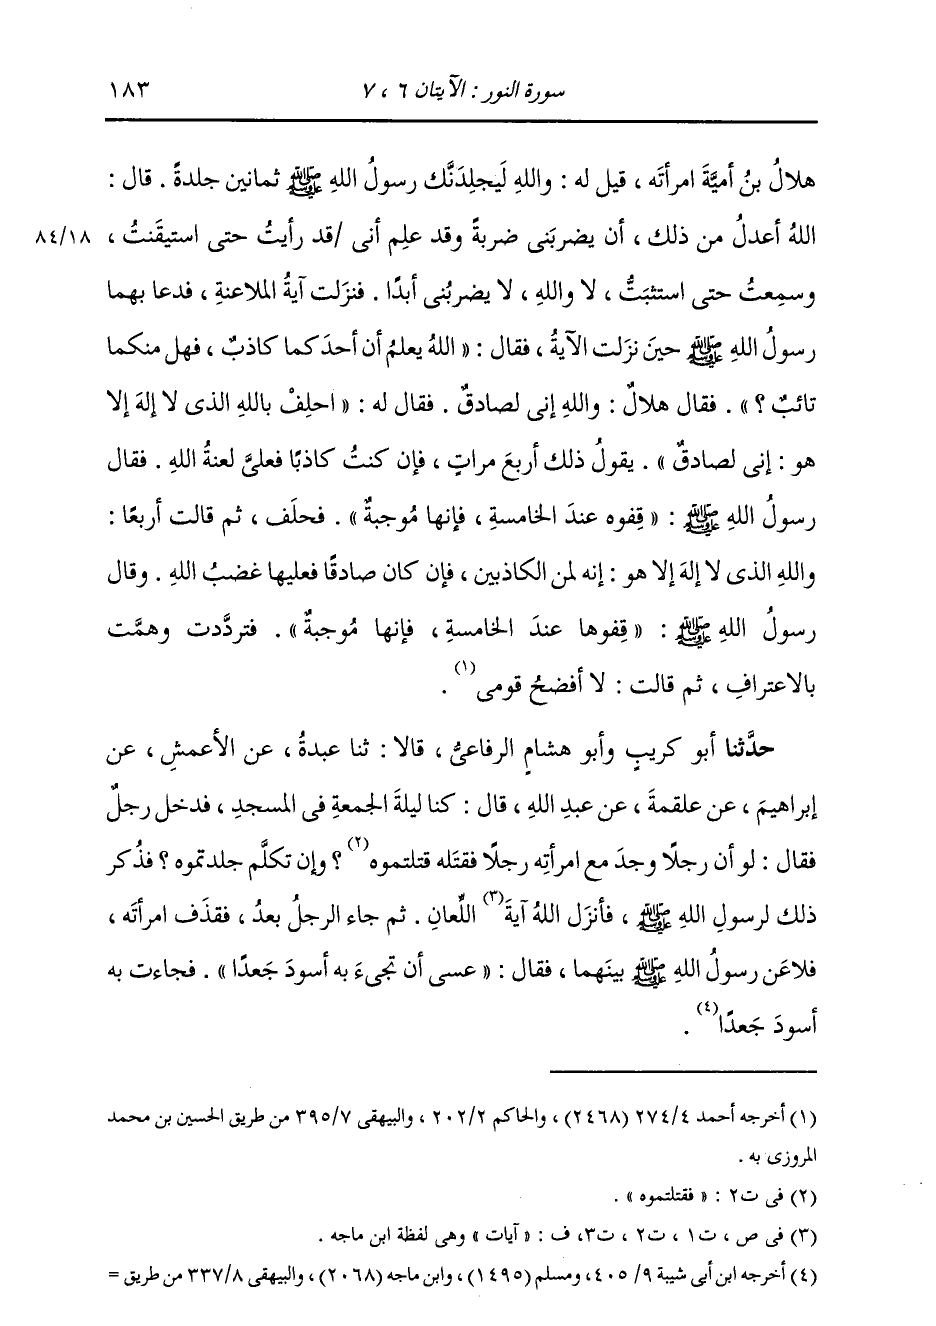 سورة النور : الآيتان ٦ ، ٧ ١٨٣
هلالُ بنُ أميَّةَ امرأتَه ، قيل له : واللهِ لَيجلِدَنَّك رسولُ اللهِ ﷺ ثمانين جلدةً . قال :
اللهُ أعدلُ من ذلك ، أن يضربَنى ضربةً وقد علِم أنى /قد رأيتُ حتى استيقَنتُ ، ٨٤/١٨
وسمِعتُ حتى استثبَتُّ ، لا واللهِ ، لا يضربُنى أبدًا . فنزَلت آيةُ الملاعنةِ ، فدعا بهما
رسولُ اللهِ ﷺ حينَ نزَلت الآيةُ ، فقال : « اللهُ يعلمُ أن أحدَكما كاذبٌ ، فهل منكما
تائبٌ ؟ » . فقال هلالٌ : واللهِ إنى لصادقٌ . فقال له : « احلِفْ باللهِ الذى لا إلهَ إلا
هو : إنى لصادقٌ » . يقولُ ذلك أربعَ مراتٍ ، فإن كنتُ كاذبًا فعلىَّ لعنةُ اللهِ . فقال
رسولُ اللهِ ﷺ : « قِفوه عندَ الخامسةِ ، فإنها مُوجبةٌ » . فحلَف ، ثم قالت أربعًا :
واللهِ الذى لا إلهَ إلا هو : إنه لمن الكاذبين ، فإن كان صادقًا فعليها غضبُ اللهِ . وقال
رسولُ اللهِ ﷺ : « قِفوها عندَ الخامسةِ ، فإنها مُوجبةٌ » . فتردَّدت وهمَّت
بالاعترافِ ، ثم قالت : لا أفضحُ قومى(١) .
حدَّثنا أبو كريبٍ وأبو هشامٍ الرفاعىُّ ، قالا : ثنا عبدةُ ، عن الأعمشِ ، عن
إبراهيمَ ، عن علقمةَ ، عن عبدِ اللهِ ، قال : كنا ليلةَ الجمعةِ فى المسجدِ ، فدخل رجلٌ
فقال : لو أن رجلًا وجدَ مع امرأتِه رجلًا فقتَله قتلتموه(٢) ؟ وإن تكلَّم جلدتموه ؟ فذُكر
ذلك لرسولِ اللهِ ﷺ ، فأنزَل اللهُ آيةَ(٣) اللِّعانِ . ثم جاء الرجلُ بعدُ ، فقذَف امرأتَه ،
فلاعَن رسولُ اللهِ ﷺ بينَهما ، فقال : « عسى أن تجىءَ به أسودَ جَعدًا » . فجاءت به
أسودَ جَعدًا(٤) .
(١) أخرجه أحمد ٢٧٤/٤ (٢٤٦٨) ، والحاكم ٢٠٢/٢ ، والبيهقى ٣٩٥/٧ من طريق الحسين بن محمد
المروزى به .
(٢) فى ت٢ : « فقتلتموه » .
(٣) فى ص ، ت١ ، ت٢ ، ت٣، ف : « آيات » وهى لفظة ابن ماجه .
(٤) أخرجه ابن أبى شيبة ٩/ ٤٠٥، ومسلم (١٤٩٥) ، وابن ماجه (٢٠٦٨) ، والبيهقى ٣٣٧/٨ من طريق =